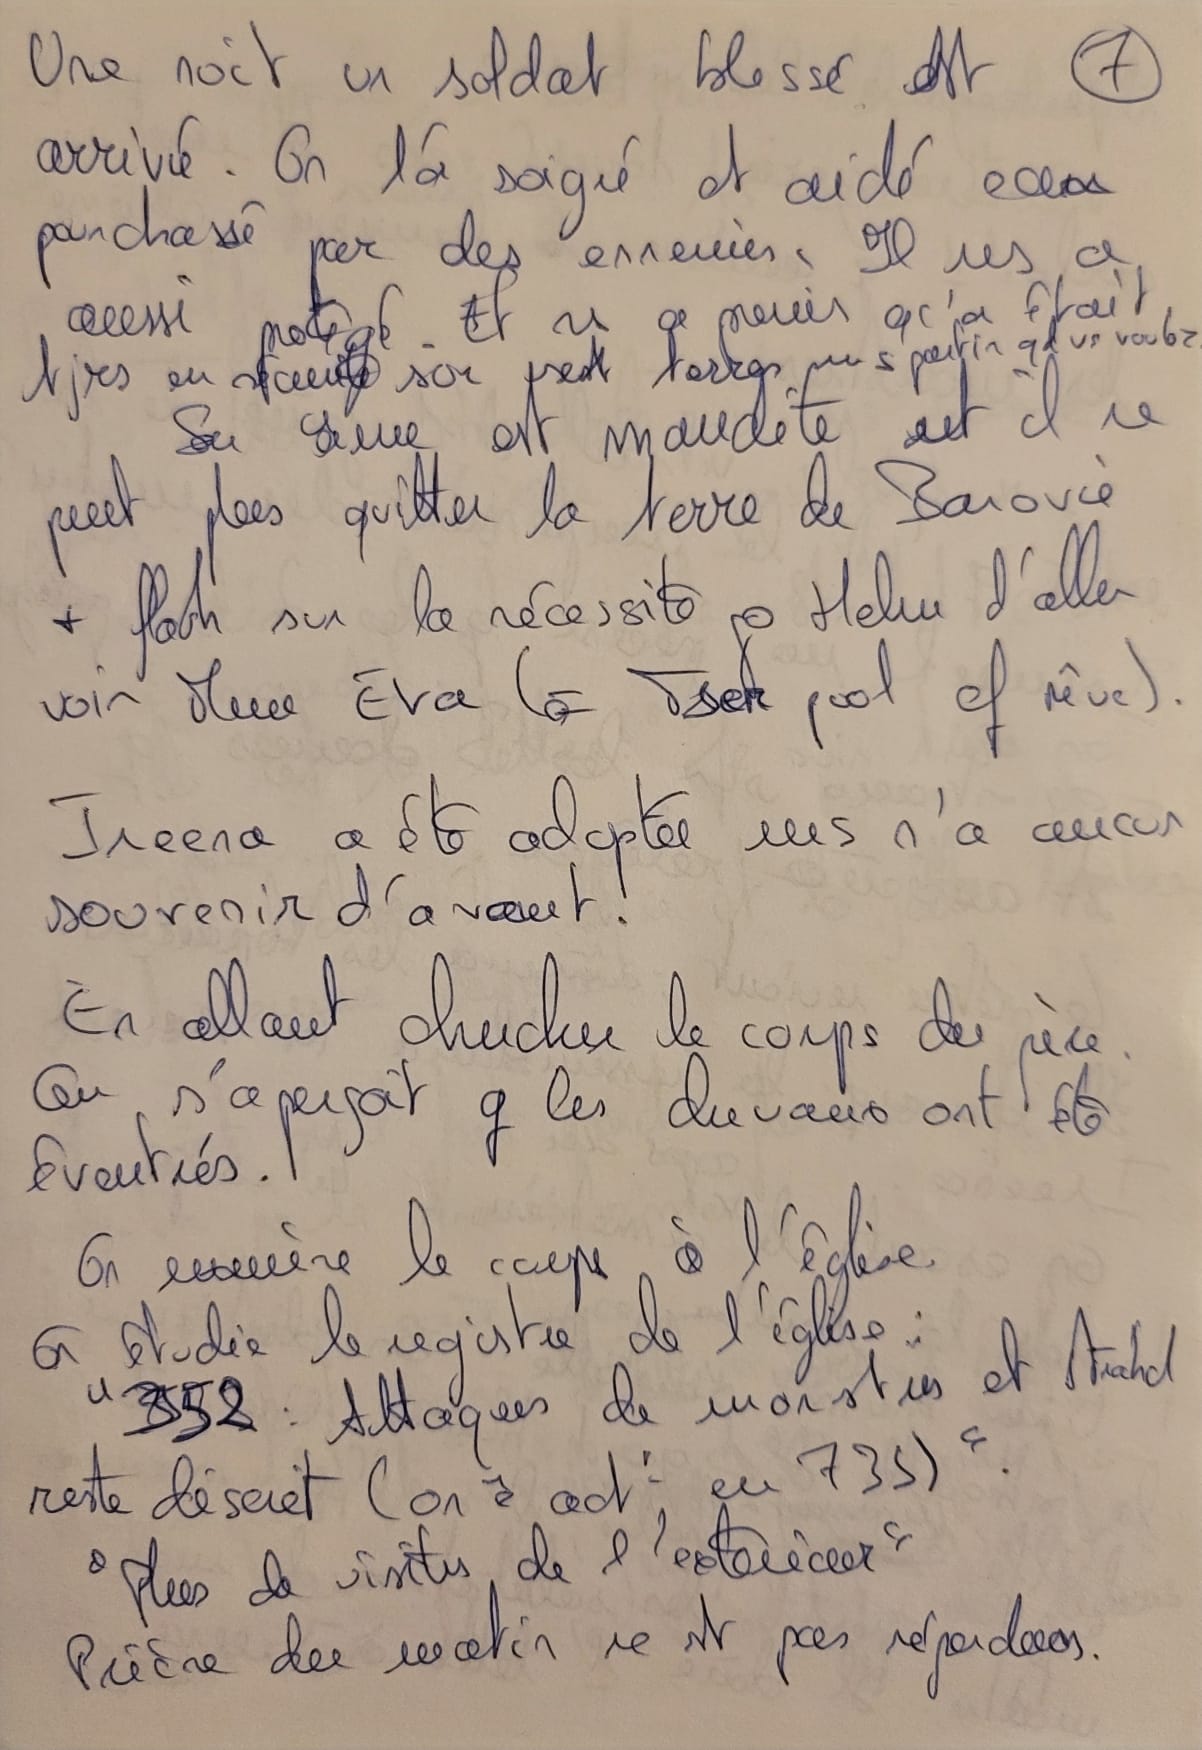 Une nuit un soldat blessé est ⑦
arrivé. On l'a soigné et aidé
pourchassé par des ennemis. Il ns a
aussi protégé. Et n a promis qu'on était
tjrs en sécurité sur ses terres. partir qd vs voulez
Son âme est maudite et il ne
peut plus quitter la terre de Barovie
+ flash sur la nécessité p Helm d'aller
voir Mme Eva (à Tser pool cf rêve).
Ireena a été adoptée ms n'a aucun
souvenir d'avant !
En allant chercher le corps du père.
On s'aperçoit q les chevaux ont été
éventrés.
On emmène le corps à l'église.
On étudie le registre de l'église :
"352 : Attaques de monstres et Strahd
reste discret (on è act^t en 735)".
"Plus de visites de l'extérieur"
Prière du matin ne st pas répondues.